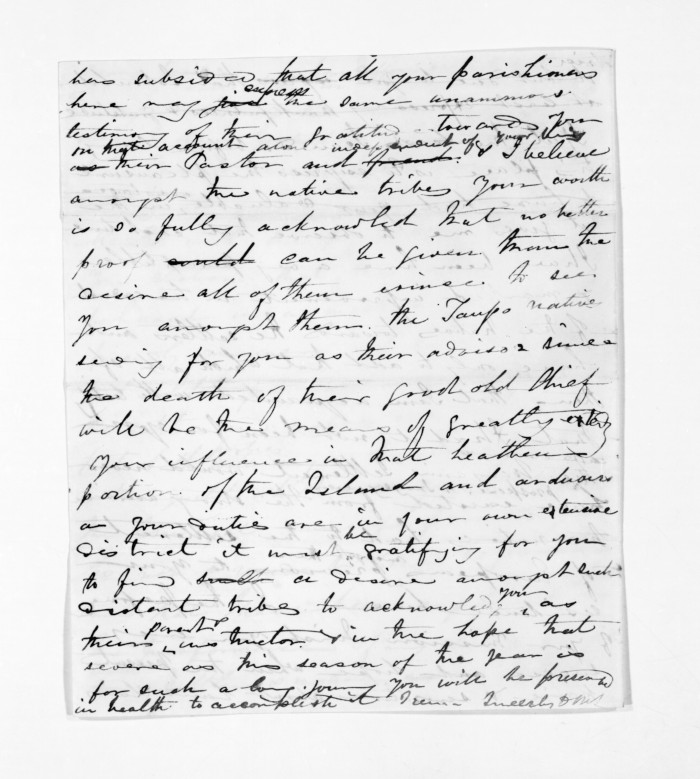 has subsided that all your parishioners
express
here may join the same unanimous
testimony of their gratitude towards you
on that account alone independent of your being
as their Pastor and friend. & I believe
amongst the native tribes your worth
is so fully acknowledged that no better
proof could can be given than the
desire all of them evince to see
you amongst them. the Taupo native
seeing for you as their advisor since
the death of their good old Chief
will be the means of greatly extendg
your influence in that heathen
portion of the Island and arduous
as your duties are in your own extensive
district it must be gratifying for you
to find such a desire amongst such
distant tribes to acknowledge you as
their parent & instructor. & in the hope that
severe as this season of the year is
for such a long journey you will be preserved
in health to accomplish it